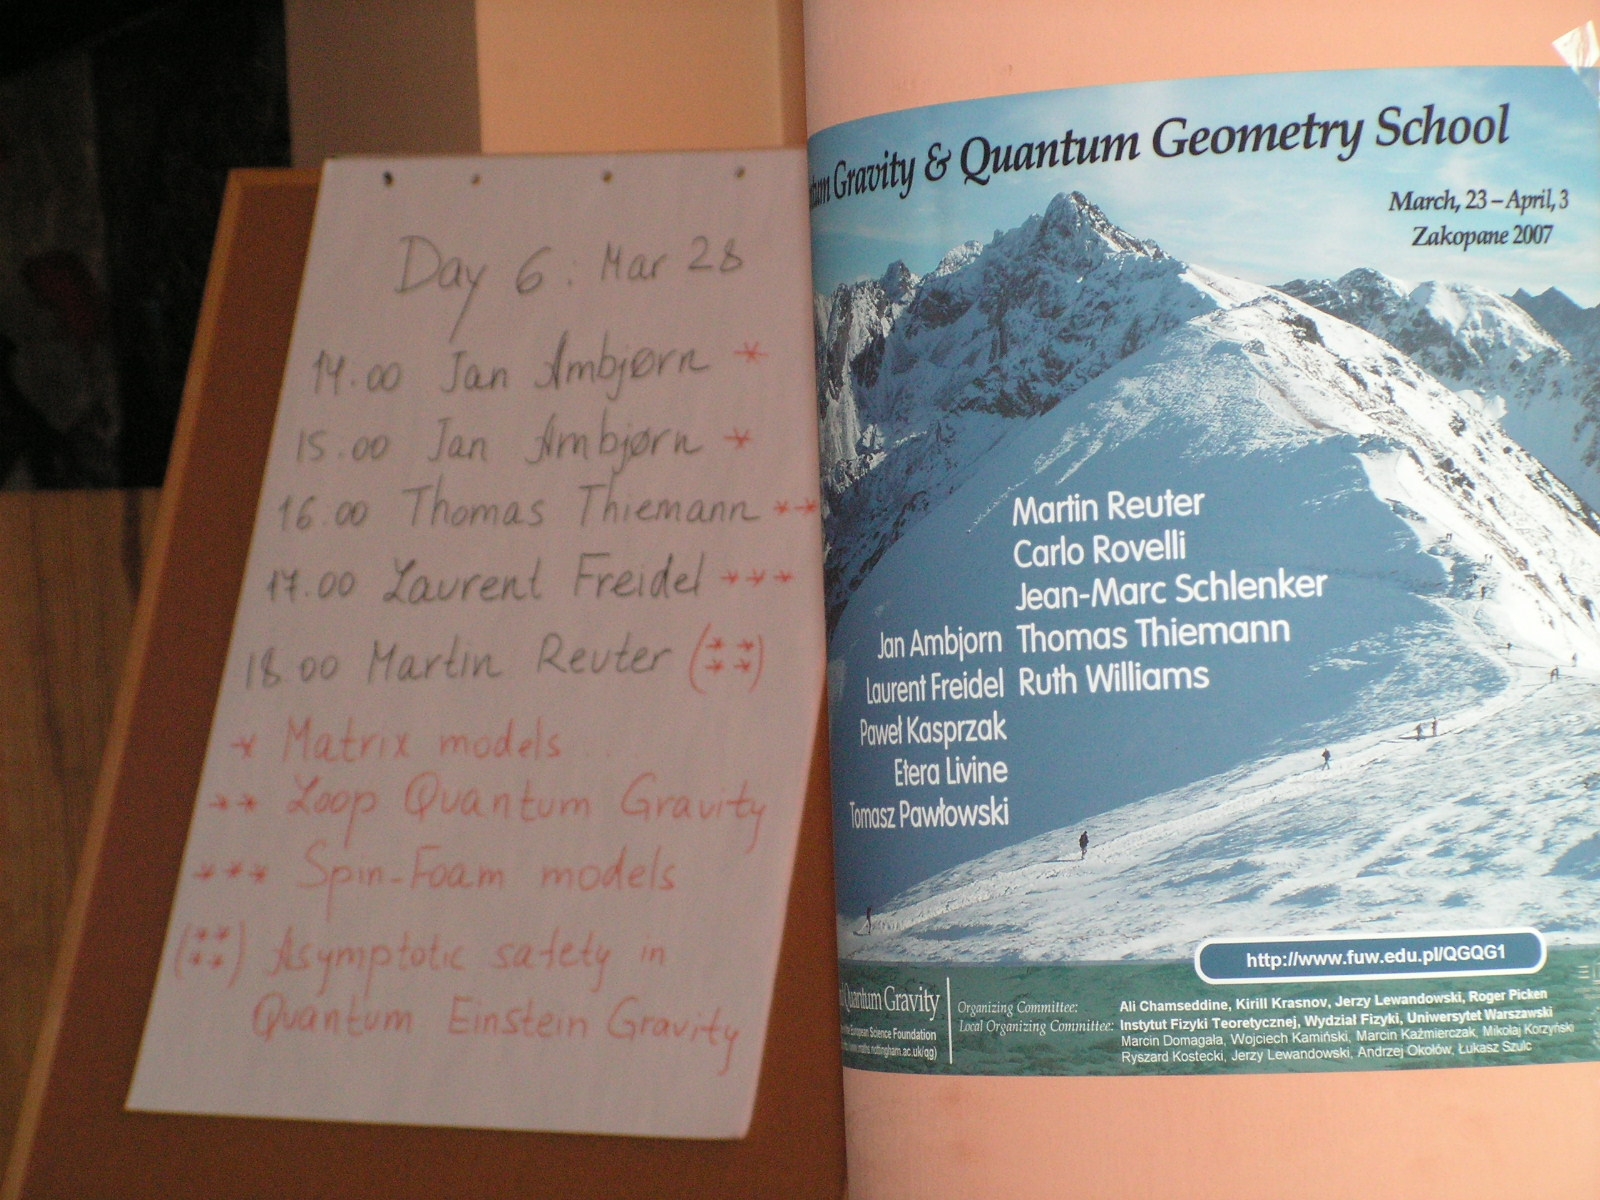 Day 6: Mar 28
14.00 Jan Ambjørn *
15.00 Jan Ambjørn *
16.00 Thomas Thiemann **
17.00 Laurent Freidel ***
18 00 Martin Reuter (****)
* Matrix models ..
** Loop Quantum Gravity
*** Spin-Foam models
(****) Asymptotic safety in
Quantum Einstein Gravity
Gravity & Quantum Geometry School
March, 23 – April, 3
Zakopane 2007
Martin Reuter
Carlo Rovelli
Jean-Marc Schlenker
Thomas Thiemann
Ruth Williams
Jan Ambjorn
Laurent Freidel
Paweł Kasprzak
Etera Livine
Tomasz Pawłowski
http://www.fuw.edu.pl/QGQG1
Quantum Gravity
European Science Foundation
nottingham.ac.uk/qg)
Organizing Committee: Ali Chamseddine, Kirill Krasnov, Jerzy Lewandowski, Roger Picken
Local Organizing Committee: Instytut Fizyki Teoretycznej, Wydział Fizyki, Uniwersytet Warszawski
Marcin Domagała, Wojciech Kamiński, Marcin Kaźmierczak, Mikołaj Korzyński
Ryszard Kostecki, Jerzy Lewandowski, Andrzej Okołów, Łukasz Szulc